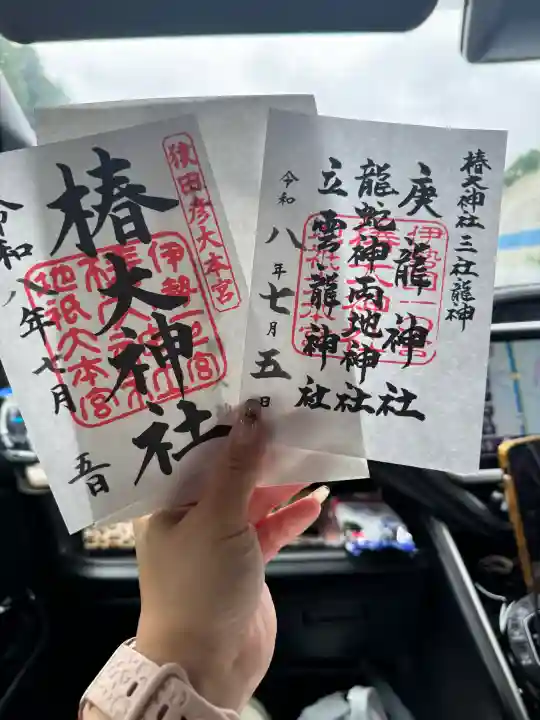 猿田彦大本宮
椿大神社
伊勢一之宮
地祇大本宮
令和八年七月
五日
椿大神社三社龍神
庚龍神社
龍蛇神雨地神社
立雲龍神社
令和八年七月五日